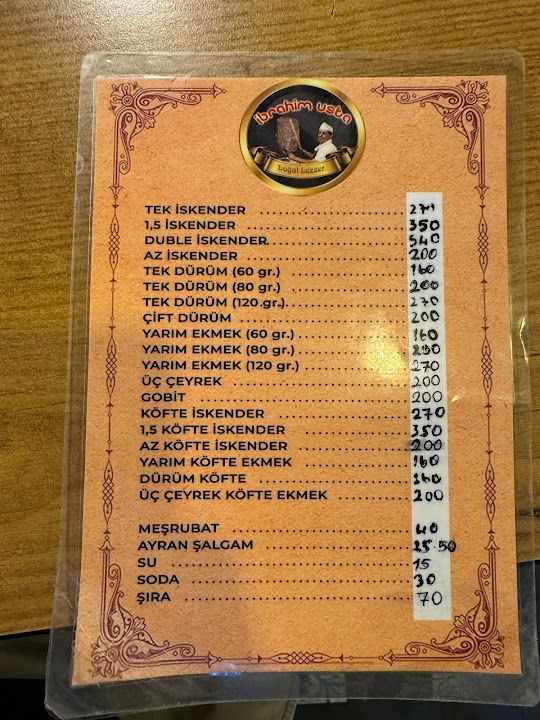 ibrahim usta
Doğal Lezzet
TEK İSKENDER .......... 270
1,5 İSKENDER .......... 350
DUBLE İSKENDER .......... 540
AZ İSKENDER .......... 200
TEK DÜRÜM (60 gr.) .......... 160
TEK DÜRÜM (80 gr.) .......... 200
TEK DÜRÜM (120.gr.) .......... 270
ÇİFT DÜRÜM .......... 200
YARIM EKMEK (60 gr.) .......... 160
YARIM EKMEK (80 gr.) ..........
YARIM EKMEK (120 gr.) .......... 270
ÜÇ ÇEYREK .......... 200
GOBİT .......... 200
KÖFTE İSKENDER .......... 270
1,5 KÖFTE İSKENDER .......... 350
AZ KÖFTE İSKENDER .......... 200
YARIM KÖFTE EKMEK .......... 160
DÜRÜM KÖFTE .......... 160
ÜÇ ÇEYREK KÖFTE EKMEK .......... 200
MEŞRUBAT .......... 40
AYRAN ŞALGAM .......... 25.50
SU .......... 15
SODA .......... 30
ŞIRA .......... 70